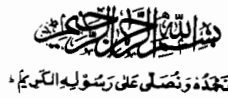 بسم الله الرحمن الرحيم
نحمدہ و نصلی علی رسولہ الکریم ط